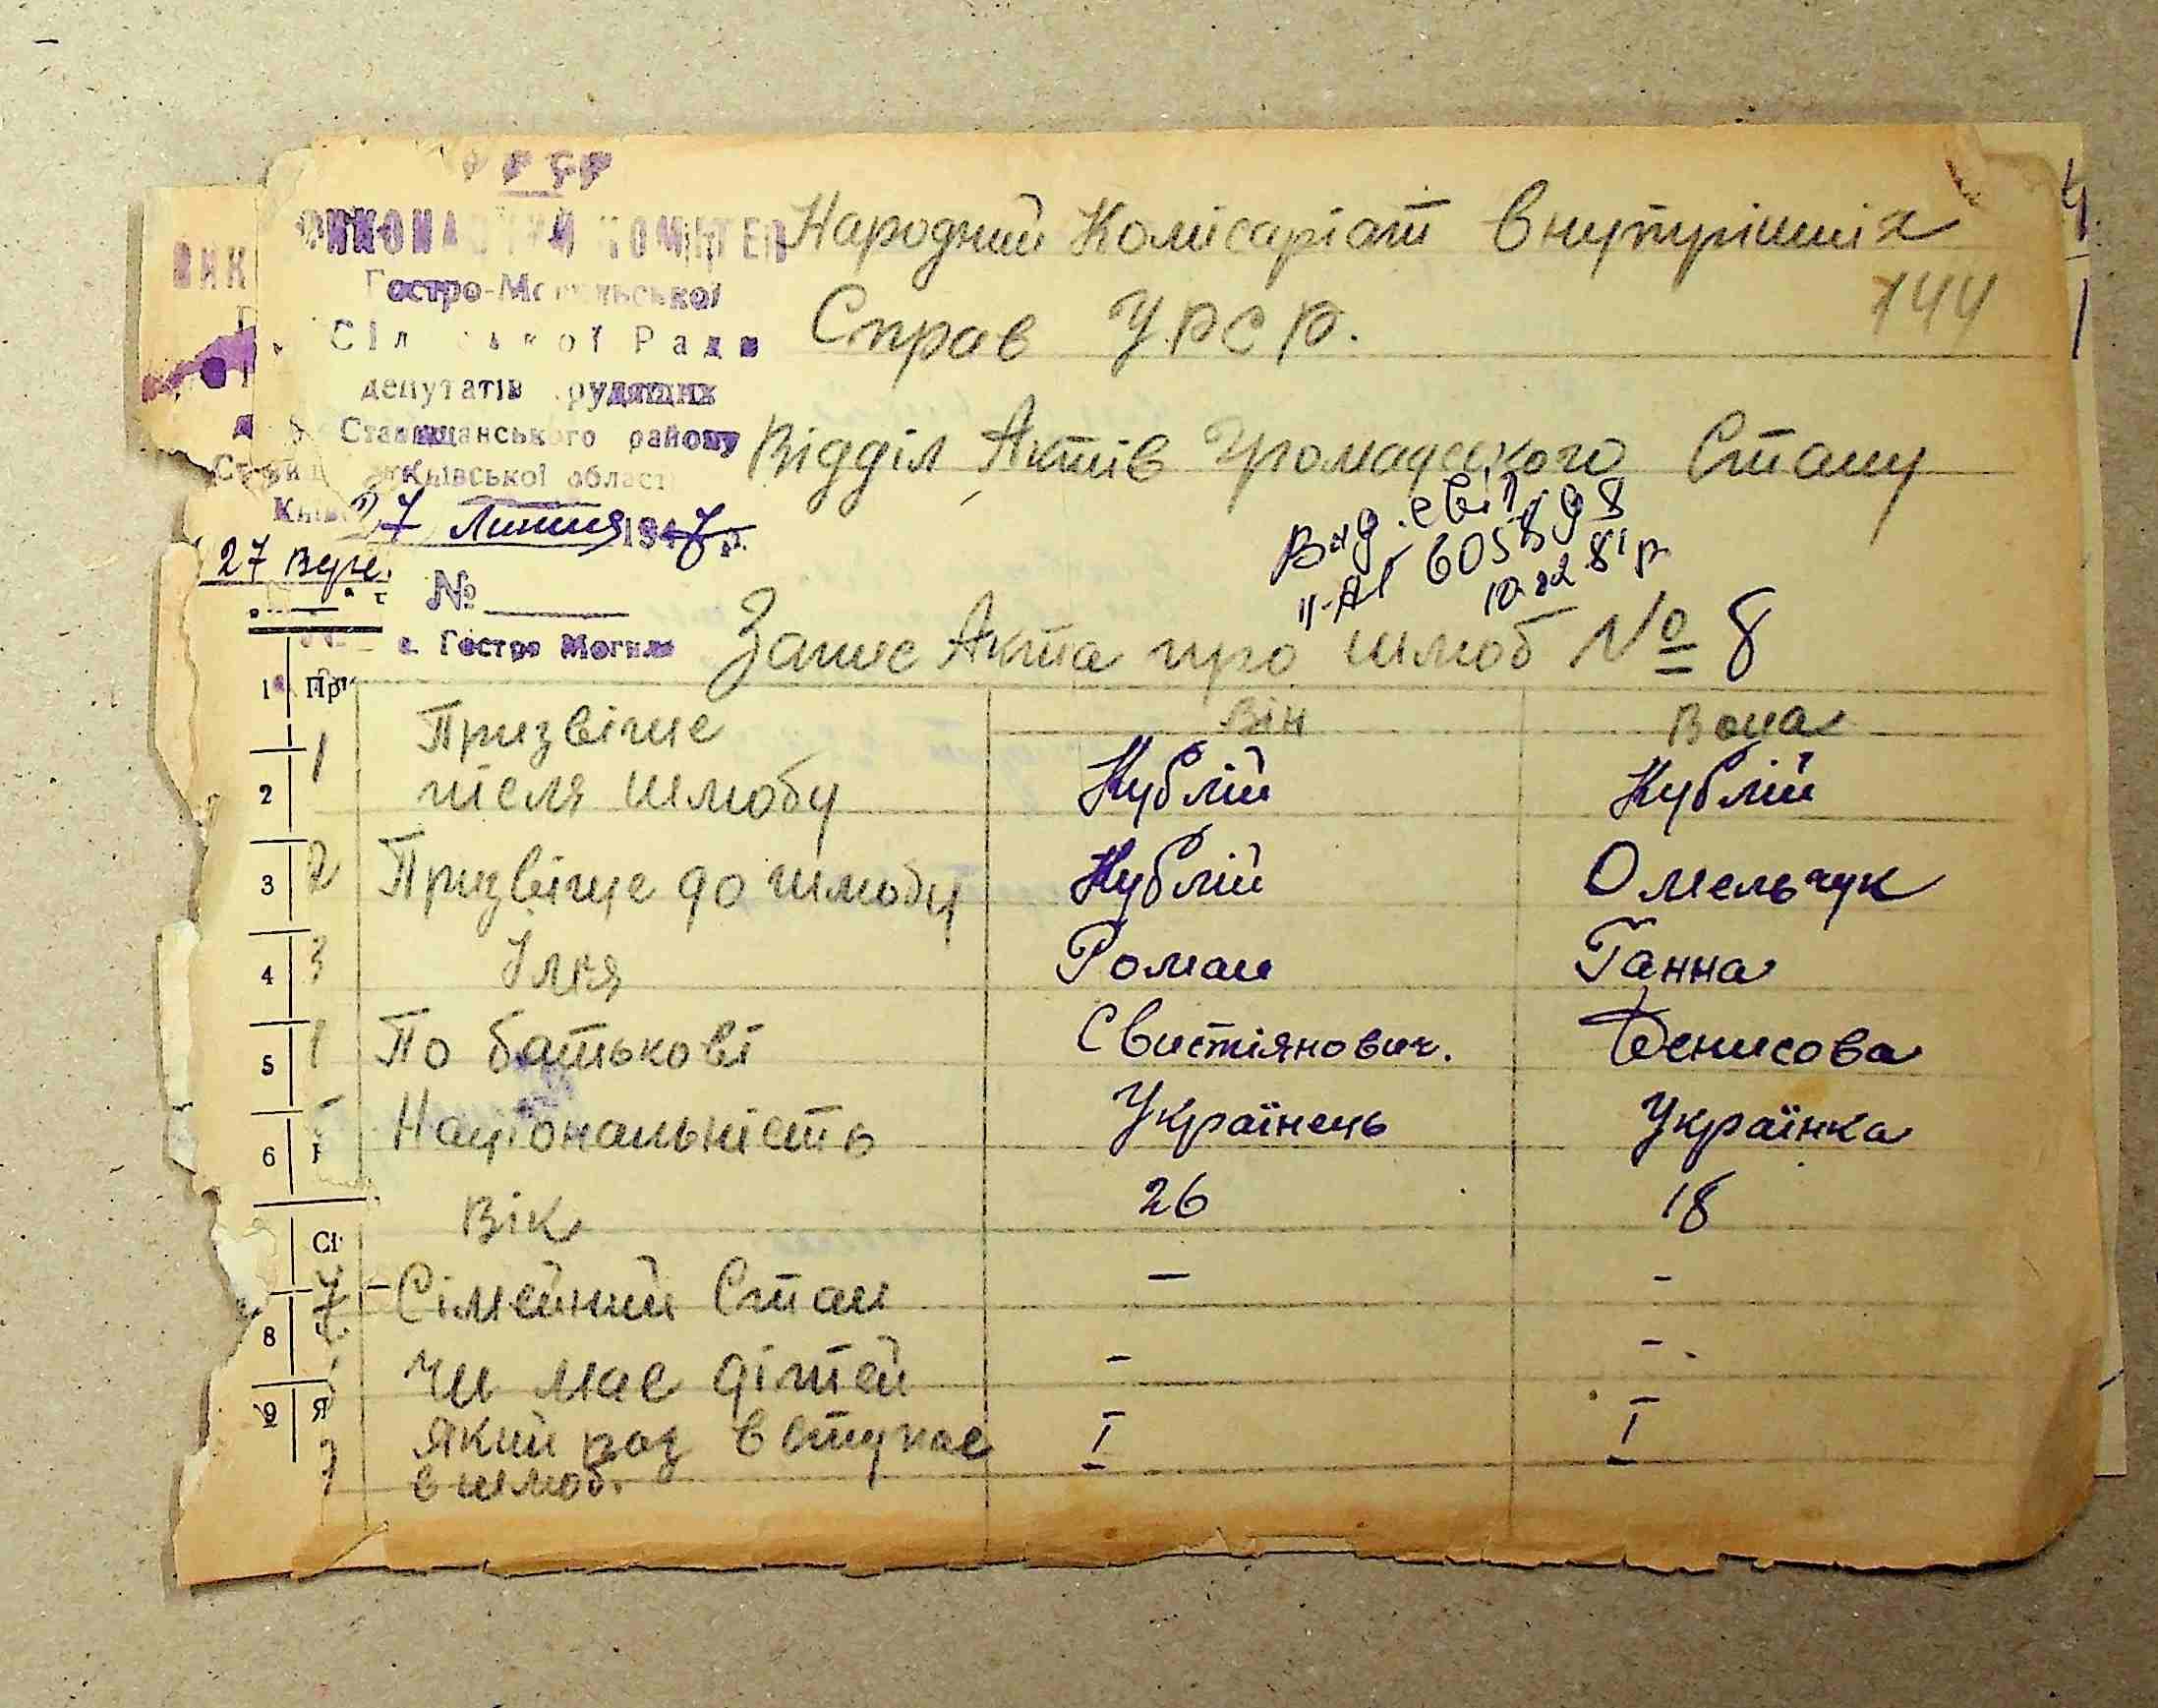 УРСР
ВИКОНАВЧИЙ КОМІТЕТ
Гостро-Могильської
Сільської Ради
депутатів трудящих
Ставищанського району
Київської області
27 Липня 1947 р.
№
с. Гостра Могила
Народний Комісаріат Внутрішніх
144
Справ УРСР.
Відділ Актів Громадського Стану
Вид. свід
ІІ-АГ 605898
10.02 81 р
Запис Акта про шлюб № 8
ВИК
27 Вере.
Він Вона
1 Призвіще
після шлюбу Кублій Кублій
2 Призвіще до шлюбу Кублій Омельчук
3 Імя Роман Ганна
По батькові Свистіянович. Денисова
Національність Українець Українка
Вік 26 18
7 Сімейний Стан — -
Чи має дітей - -
Який раз вступає I I
в шлюб.
1 Пр
2
3
4
5
6
Сі
8
9 Я